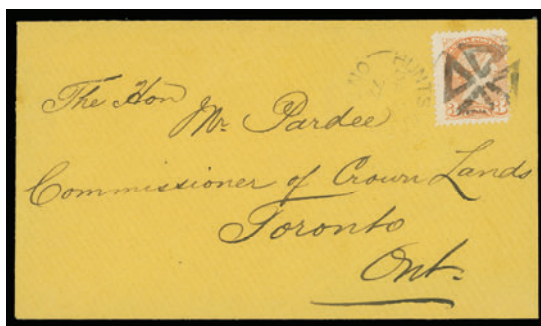 HUNTS
ON
3 3
The Hon
Mr. Pardee
Commissioner of Crown Lands
Toronto
Ont.